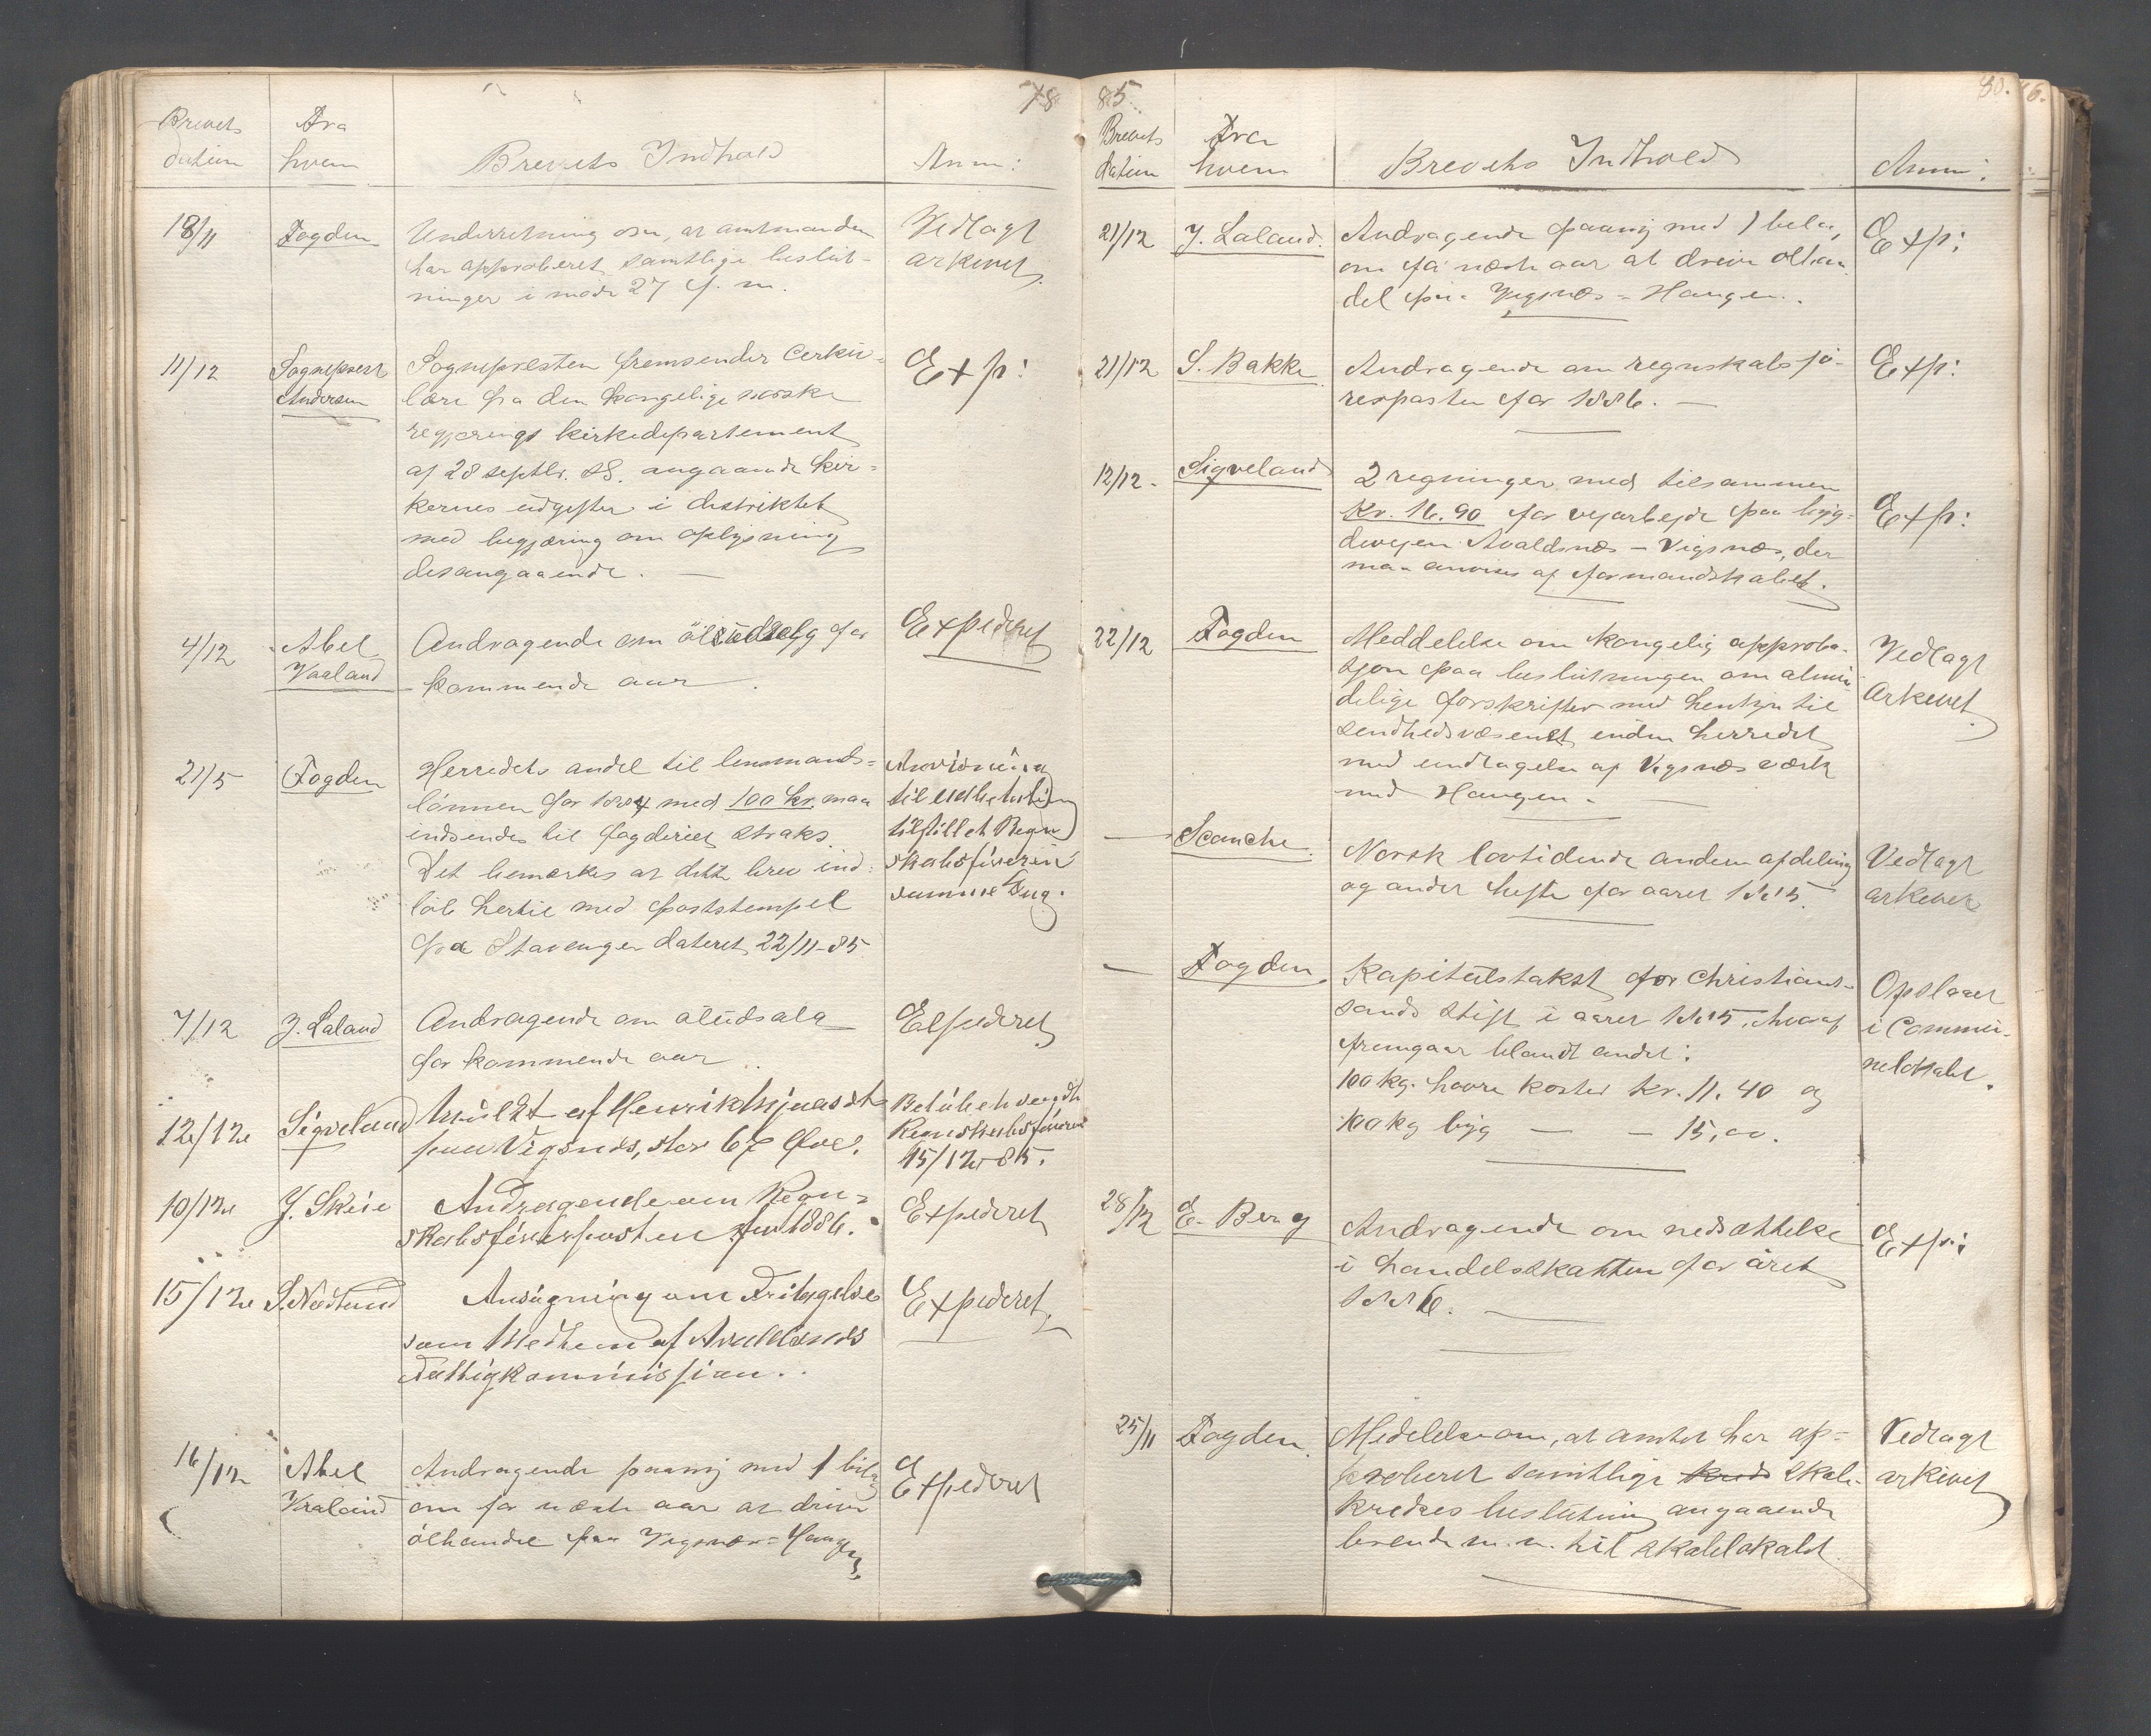 78
Brevets datum
Fra hvem
Brevets Indhold
Anm:
18/11 Fogden Underretning om, at amtmanden
har approberet samtlige beslut-
ninger i møde 27 f. m.
Vedlagt
arkivet.
11/12 Sogneprest
Andersen
Sognepresten fremsender Cerku-
lære fra den kongelige norske
regjerings kirkedepartement
af 28 septbr. d.S. angaaende kir-
kernes udgifter i distriktet
med begjæring om oplysning
desangaaende. —
Exp:
4/12 Abel
Vaaland
Andragende om öludsalg for
kommende aar.
Expederet
21/5 Fogden
Herredets andel til lensmands-
lönnen for 1884 med 100 kr. maa
indsendes til fogderiet straks.
Det bemærkes at dette brev ind-
löb hertil med poststempel
fra Stavanger dateret 22/11-85
Anvisning
til Udbetaling
tilstillet Regn
skabsföreren
samme Dag.
7/12 J. Laland
Andragende om öludsalg
for kommende aar..
Expederet
12/12 Sigveland
Mulkt af Henrik
paa Vigsnæs, stor
Beløbet sendt
Regnskabsföreren
15/12 85.
10/12 J. Skeie
Andragende om Regn-
skabsförerposten for 1886.
Expederet
15/12 S. Nedland
Ansögning om Fritagelse
som Medlem af Avaldsnæs
Fattigkommission..
Expederet
16/12 Abel
Vaaland
Andragende paany med 1 bilag
om for næste aar at drive
ölhandel paa Vigsnæs-Haugen
Expederet
85.
80.
6.
Brevets datum
Fra hvem
Brevets Indhold
Anm:
21/12 J. Laland.
Andragende paany med 1 belag,
om få næste aar at drive ölhan
del paa Vigsnæs-Haugen.
Exp:
21/12 S. Bakke
Andragende om regnskabsfö-
rerposten for 1886. —
Exp:
12/12. Sigveland
2 regninger med tilsammen
Kr. 16.90 for vejarbejde paa byg-
devejen Avaldsnæs - Vigsnæs, der
maa anvises af formandskabet.
Exp:
22/12 Fogden
Meddelelse om kongelig approba-
sjon paa beslutningen om almin
delige forskrifter med hensyn til
sundhedsvæsenet inden herredet
med undtagelse af Vigsnæs værk
med Haugen.
Vedlagt
Arkivet.
— Scanche.
Norsk lovtidende anden afdeling
og andet hefte for aaret 1885.
Vedlagt
arkivet
— Fogden.
Kapitelstakst for Christians-
sands stift i aaret 1885, hvoraf
fremgaar blandt andet:
100 kg. havre koster kr. 11.40 og
100 kg byg — — 15,00.
Opslaaet
i Commu-
nelokalet.
28/12 E. Berg
Andragende om nedsættelse
i handelsskatten for året
1886. —
Exp:
25/11 Fogden.
Medelelse om, at amtet har ap-
proberet samtlige skole-
kredses beslutning angaaende
brende m.m. til skolelokalet.
Vedlagt
arkivet